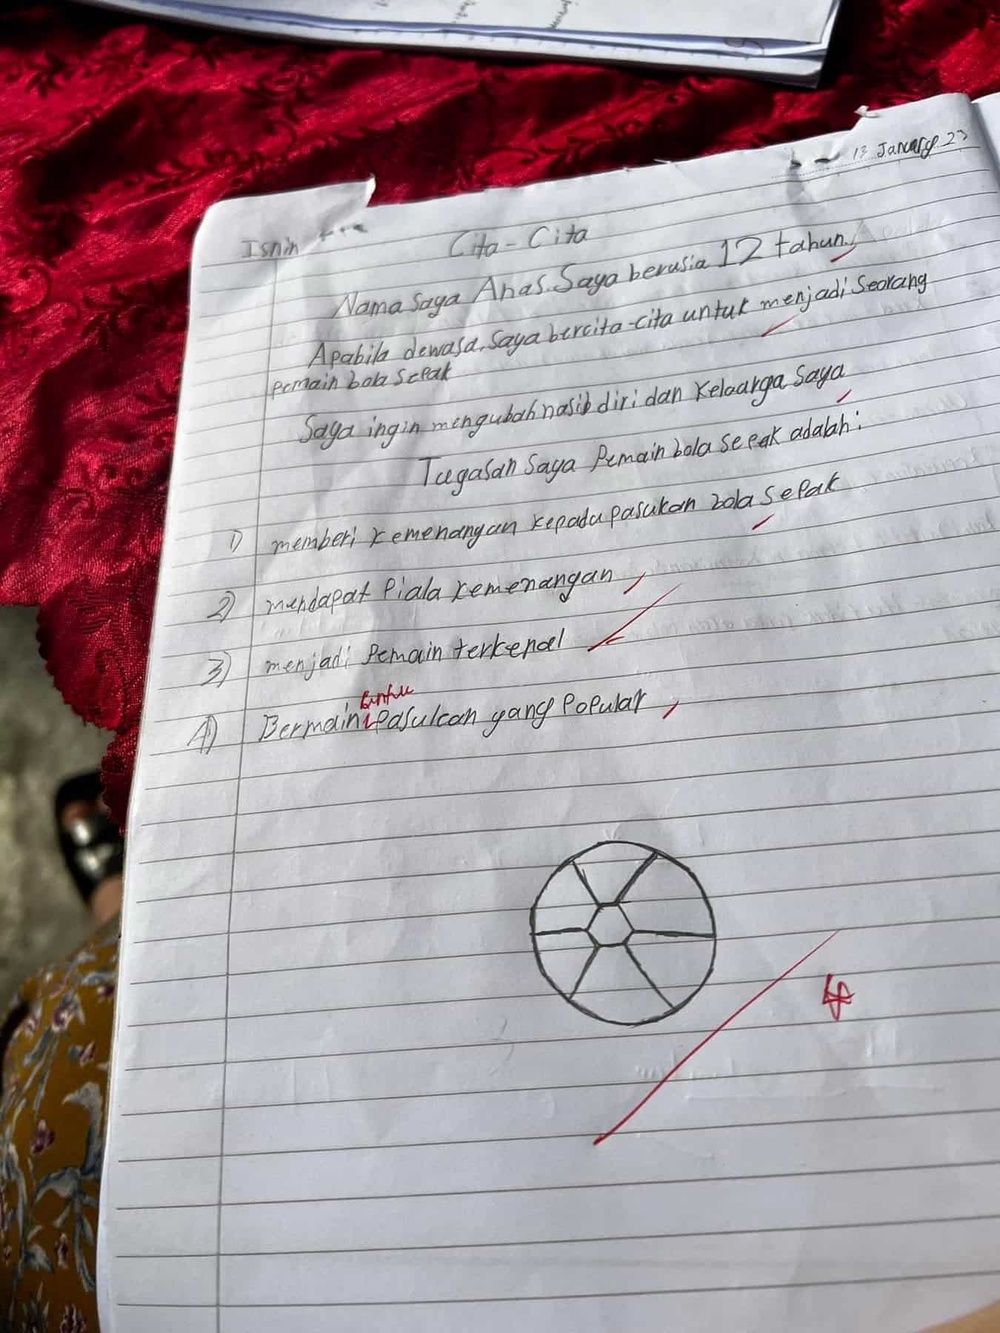 Isnin
13 January 23
Cita-Cita
Nama Saya Anas. Saya berusia 12 tahun.
Apabila dewasa, Saya bercita-cita untuk menjadi Seorang
Pemain bola Sepak
Saya ingin mengubah nasib diri dan Keluarga Saya
Tugasan Saya Pemain bola Sepak adalah:
1) memberi kemenangan kepada pasukan bola Sepak
2) mendapat Piala kemenangan
3) menjadi Pemain terkenal
untuk
4) Bermain Pasukan yang Popular